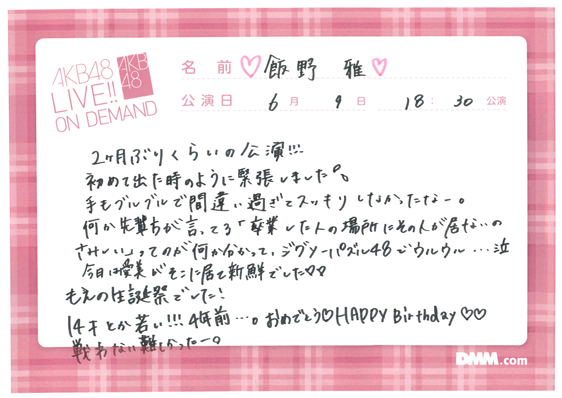 AKB48
LIVE!!
ON DEMAND
AKB
48
名前 ♡飯野 雅♡
公演日 6月 9日 18:30公演
2ヶ月ぶりくらいの公演!!!
初めて出た時のように緊張しました。
手もブルブルで間違い過ぎてスッキリしなかったなー。
何か先輩たちが言ってる「卒業した人の場所にその人が居ないの
さみしい」ってのが何か分かって、ジグソーパズル48でウルウル…泣
今日は愛美がそこに居て新鮮でした♡♡
もえの生誕祭でした!
14才とか若い!!!4年前…。おめでとう♡HAPPY Birthday♡♡
戦わない難しかったー。
DMM.com